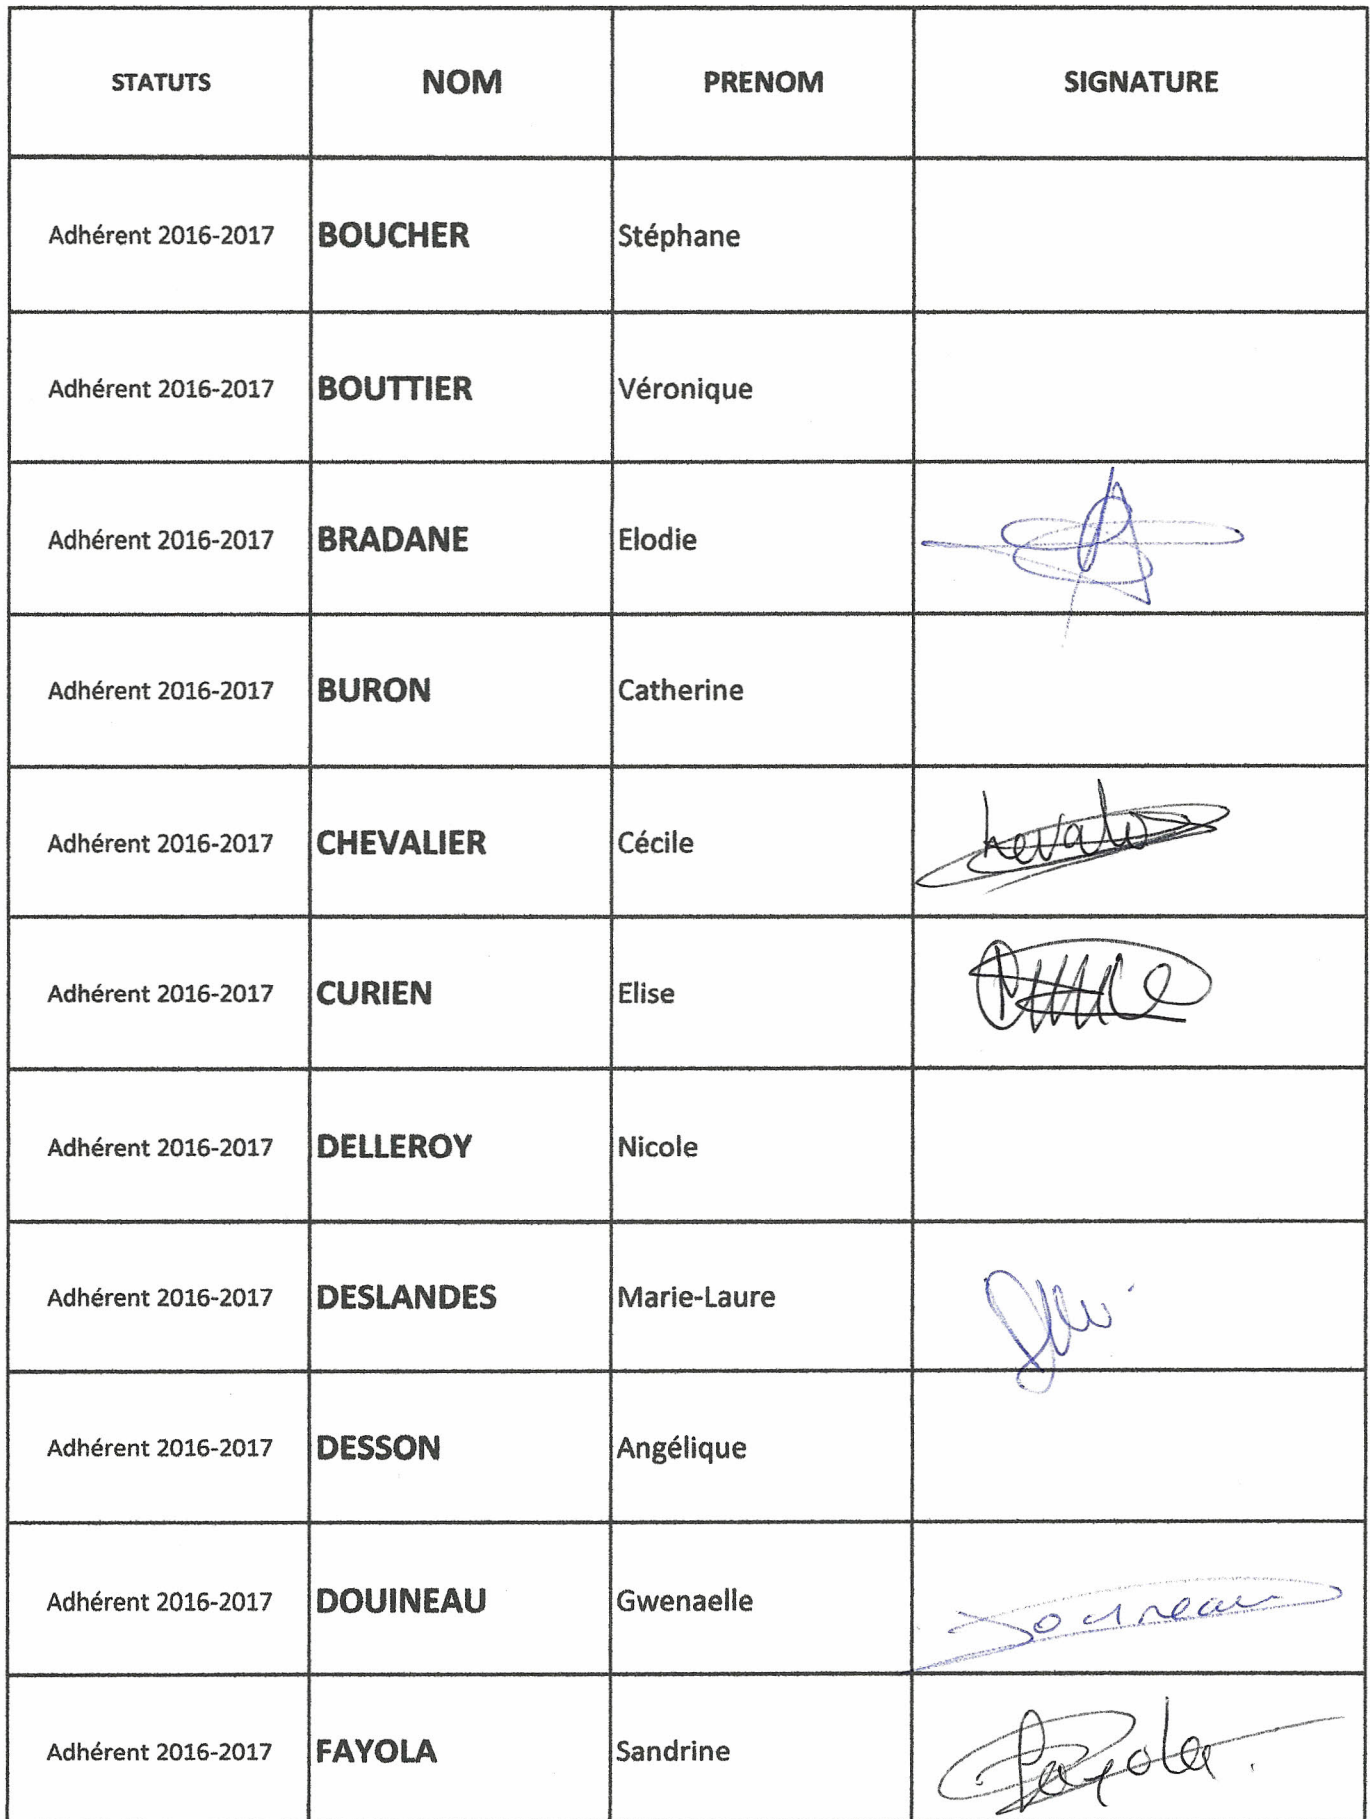 STATUTS NOM PRENOM SIGNATURE
Adhérent 2016-2017 BOUCHER Stéphane
Adhérent 2016-2017 BOUTTIER Véronique
Adhérent 2016-2017 BRADANE Elodie
Adhérent 2016-2017 BURON Catherine
Adhérent 2016-2017 CHEVALIER Cécile
Adhérent 2016-2017 CURIEN Elise
Adhérent 2016-2017 DELLEROY Nicole
Adhérent 2016-2017 DESLANDES Marie-Laure
Adhérent 2016-2017 DESSON Angélique
Adhérent 2016-2017 DOUINEAU Gwenaelle Douineau
Adhérent 2016-2017 FAYOLA Sandrine Fayola